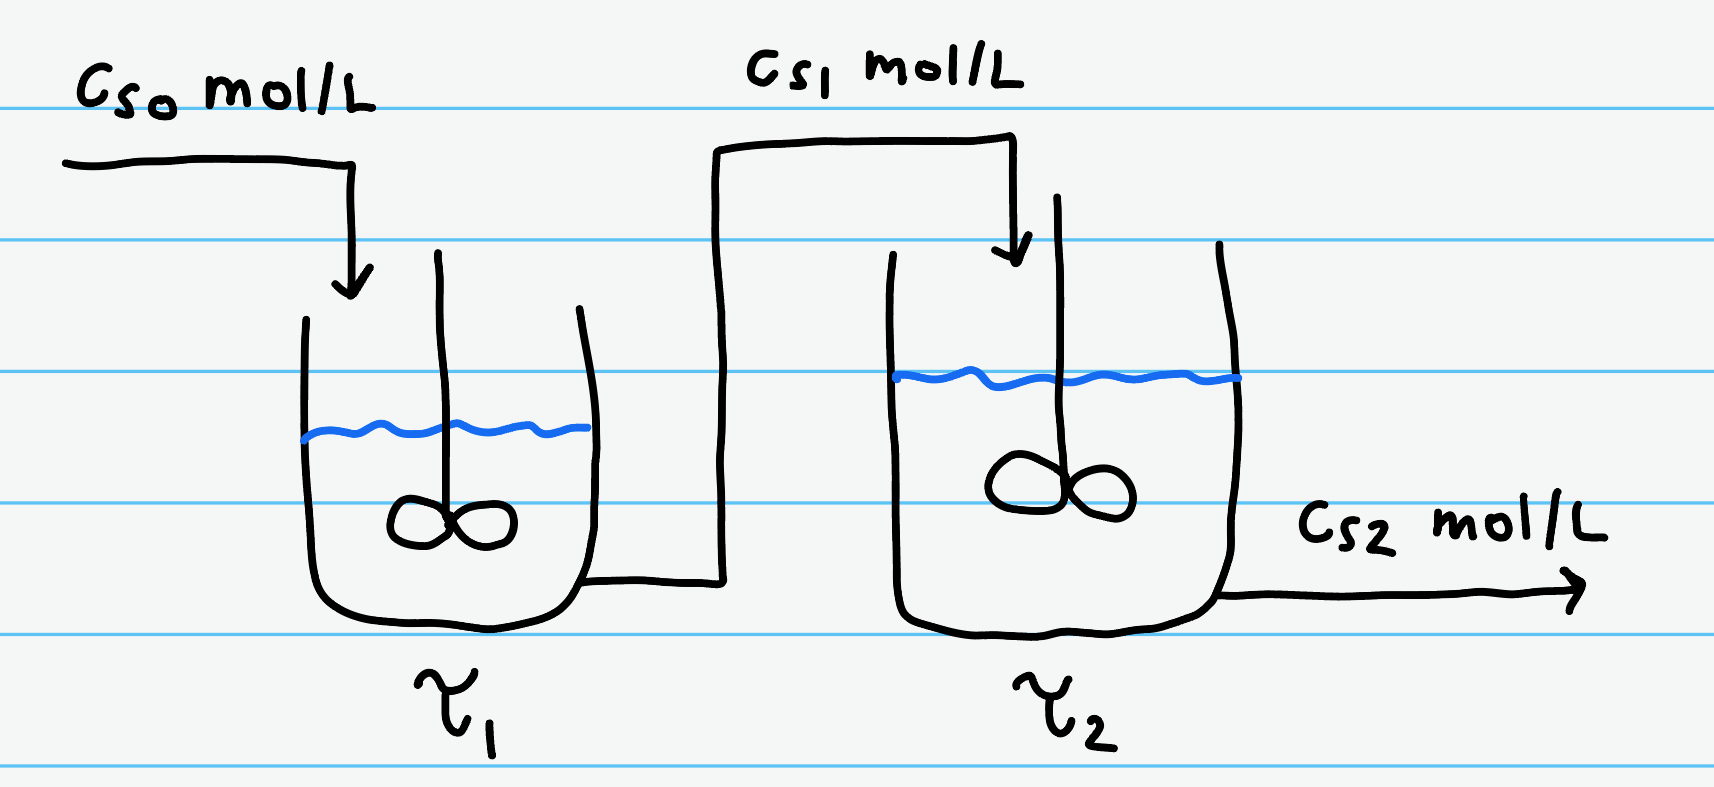 Cs0 mol/L
Cs1 mol/L
Cs2 mol/L
τ1
τ2